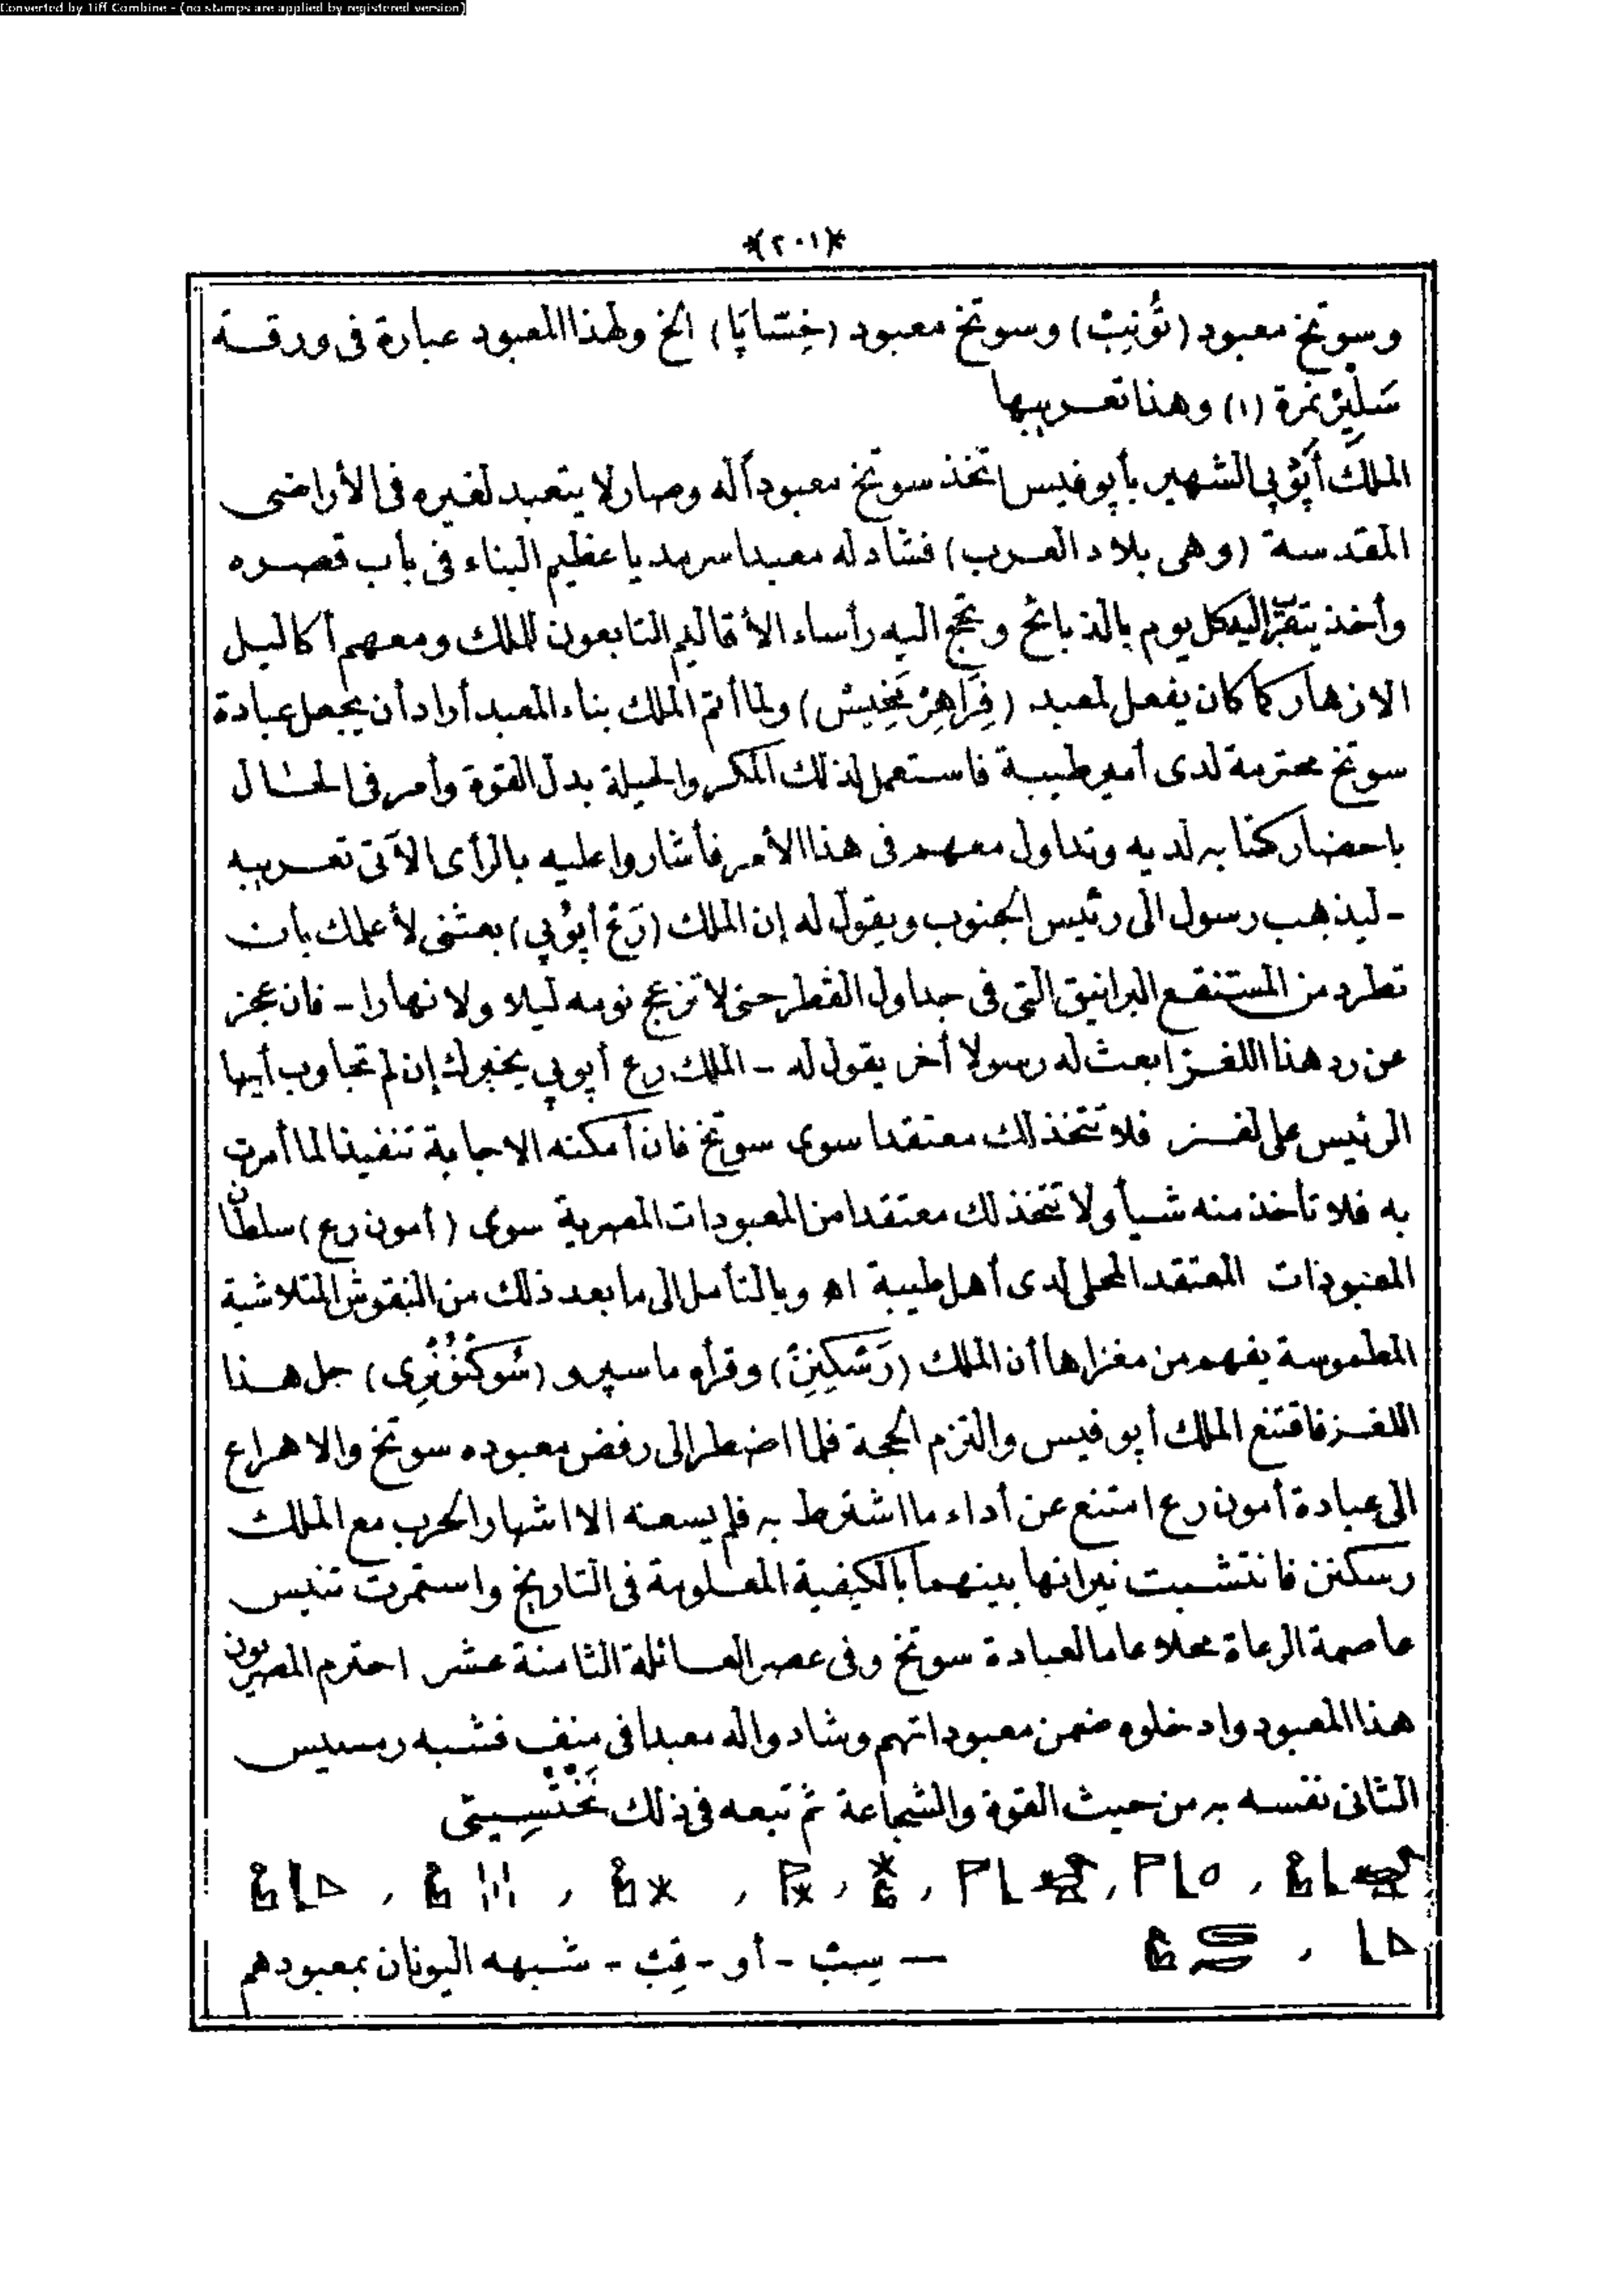 Converted by Tiff Combine - (no stamps are applied by registered version)
*(٢٠١)*
وسوتخ معبود (تُونِبْ) وسوتخ معبود (خِسَّاپَا) الخ ولهذا المعبود عبارة فى ورقة
سَلِيِرْ نمرة (١) وهذا تعريبها
الملك أَپُوْپِى الشهير بأپوفيس اتخذ سوتخ معبوداً له وصار لا يتعبد لغيره فى الأراضى
المقدسة (وهى بلاد العرب) فشاد له معبدا سرمديا عظيم البناء فى باب قصره
وأخذ يتقرّب اليه كل يوم بالذبائح وتحج اليه رأساء الأقاليم التابعون للملك ومعهم أكاليل
الازهار كما كان يفعل لمعبد (فِرَاهِرْمَخِيسْ) ولما أتم الملك بناء المعبد أراد أن يجعل عبادة
سوتخ محترمة لدى أمير طيبة فاستعمل لذلك المكر والحيلة بدل القوة وأمر فى الحال
باحضار كتابه لديه وتداول معهم فى هذا الأمر فأشاروا عليه بالرأى الآتى تعريبه
- ليذهب رسول الى رئيس الجنوب ويقول له إن الملك (رَعْ أپوُپِى) بعثنى لأعلمك بأن
تطرد من المستنقع البرانيق التى فى جداول القطر حتى لا تزعج نومه ليلا ولا نهارا - فان عجز
عن رد هذا اللغز ابعث له رسولا أخر يقول له - الملك رع أپوپى يخبرك إن لم تجاوب أيها
الرئيس على لغز فلا تتخذ لك معتقدا سوى سوتخ فان أمكنه الاجابة تنفيذا لما أمرت
به فلا تأخذ منه شيأ ولا تتخذ لك معتقدا من المعبودات المصرية سوى (أمون رع) سلطان
المعبودات المعتقد المحلى لدى أهل طيبة اه وبالتأمل الى ما بعد ذلك من النقوش المتلاشية
المطموسة يفهم من مغزاها أن الملك (رَسْكِنِنْ) وقرأه ماسپرو (سُوكْنُوْنْرِى) حل هذا
اللغز فاقتنع الملك أپوفيس والتزم الحجة فلما اضطر الى رفض معبوده سوتخ والاهراع
الى عبادة أمون رع امتنع عن أداء ما اشترط به فلم يسعه الا اشهار الحرب مع الملك
رسكنن فانتشبت نيرانها بينهما بالكيفية المعلومة فى التاريخ واستمرت تنيس
عاصمة الرعاة محلا عاما لعبادة سوتخ وفى عصر العائلة الثامنة عشر احترم المصريون
هذا المعبود وادخلوه ضمن معبوداتهم وشادوا له معبدا فى منف فشبه رمسيس
الثانى نفسه به من حيث القوة والشجاعة ثم تبعه فى ذلك
— سِبْ - أو - - شبهه اليونان بمعبودهم